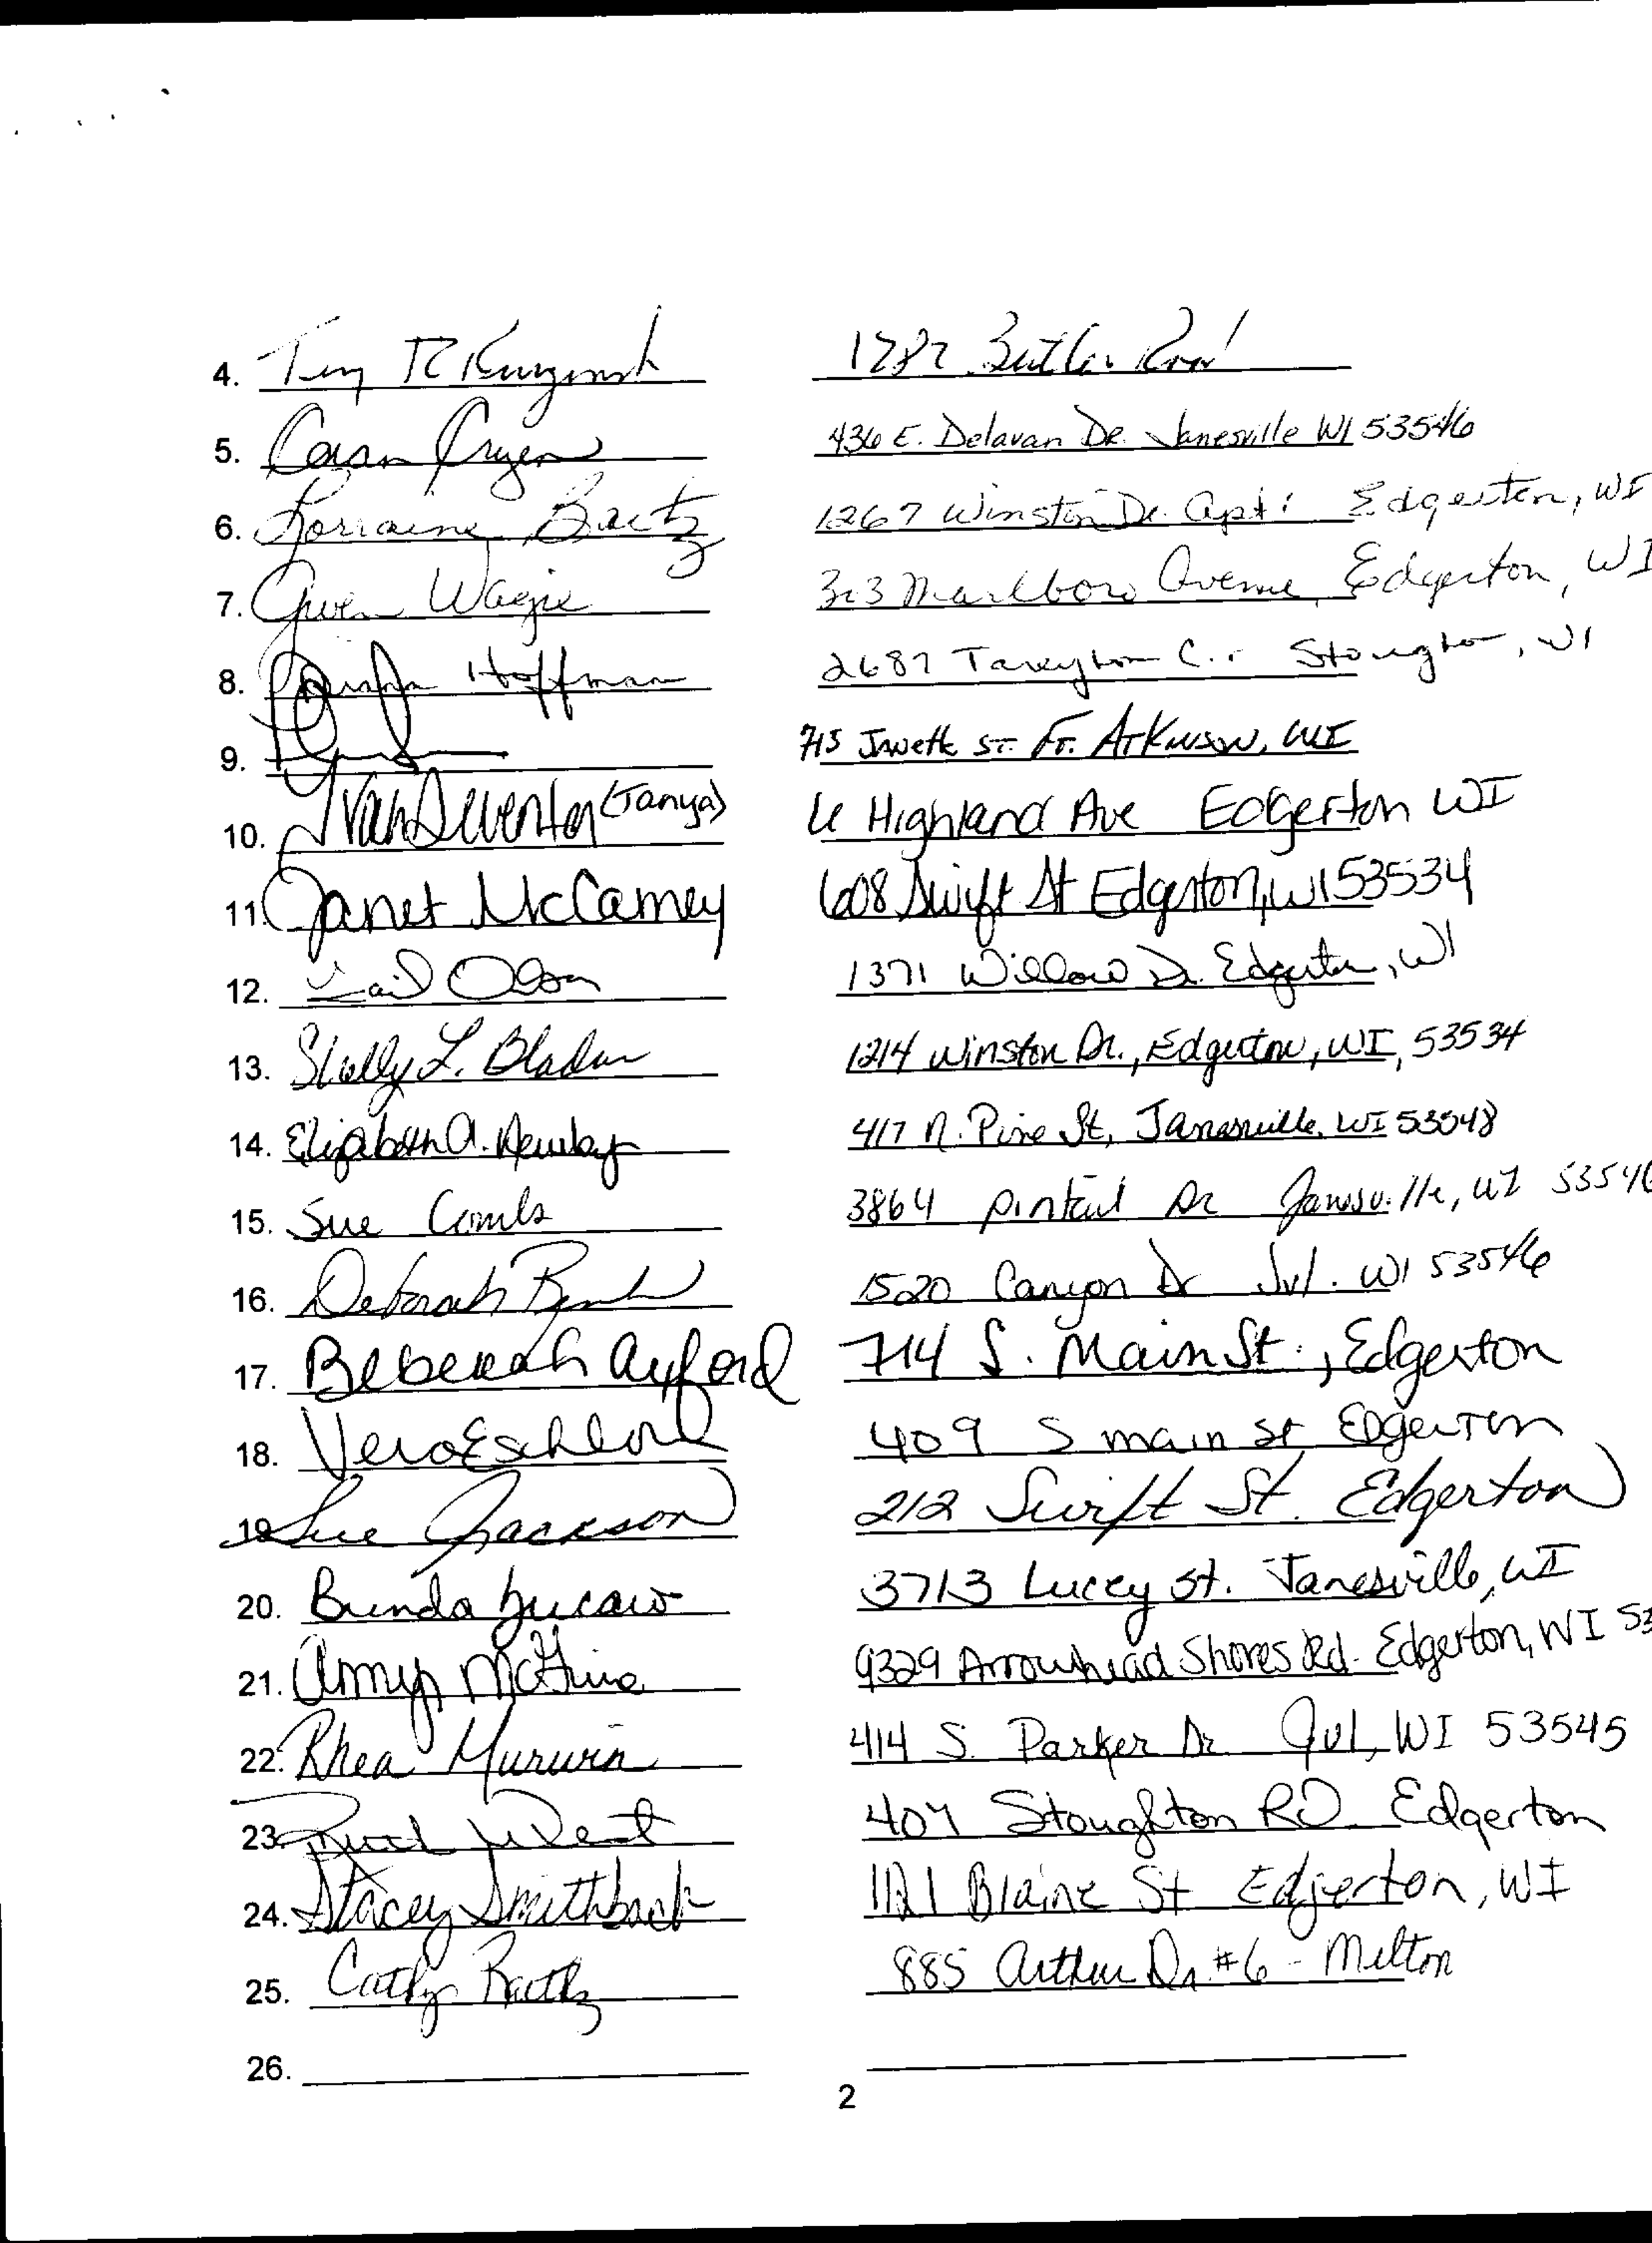 4. R 1787 Butler Road
5. 436 E. Delavan Dr. Janesville WI 53546
6. Lorraine Bartz 1267 Winston Dr. Apt Edgerton, WI
7. Gwen 303 Marlboro Avenue, Edgerton, WI
8. Hoffman 2687 Stoughton, WI
9. 715 St. Ft. Atkinson, WI
10. T VanDeventer (Tanya) Highland Ave Edgerton WI
11. Janet McCamey 608 Swift St Edgerton, WI 53534
12. Gail Olson 1371 Willow Dr. Edgerton, WI
13. Shelly L. 1214 Winston Dr., Edgerton, WI, 53534
14. Elizabeth A. Newby 417 N. Pine St, Janesville, WI 53548
15. Sue 3864 Pintail Dr Janesville, WI 53546
16. Deborah 1520 Canyon Dr Jvl. WI 53546
17. Ayford 714 S. Main St., Edgerton
18. 409 S main st Edgerton
19. Sue Jackson 212 Swift St. Edgerton
20. 3713 Lucey St. Janesville, WI
21. Amy 9329 Arrowhead Shores Rd. Edgerton, WI 53
22. Rhea 414 S. Parker Dr Jvl, WI 53545
23. West 407 Stoughton RD Edgerton
24. Stacey Smithback 1121 Blaine St Edgerton, WI
25. Cathy 885 Arthur Dr. #6 - Milton
26.
2